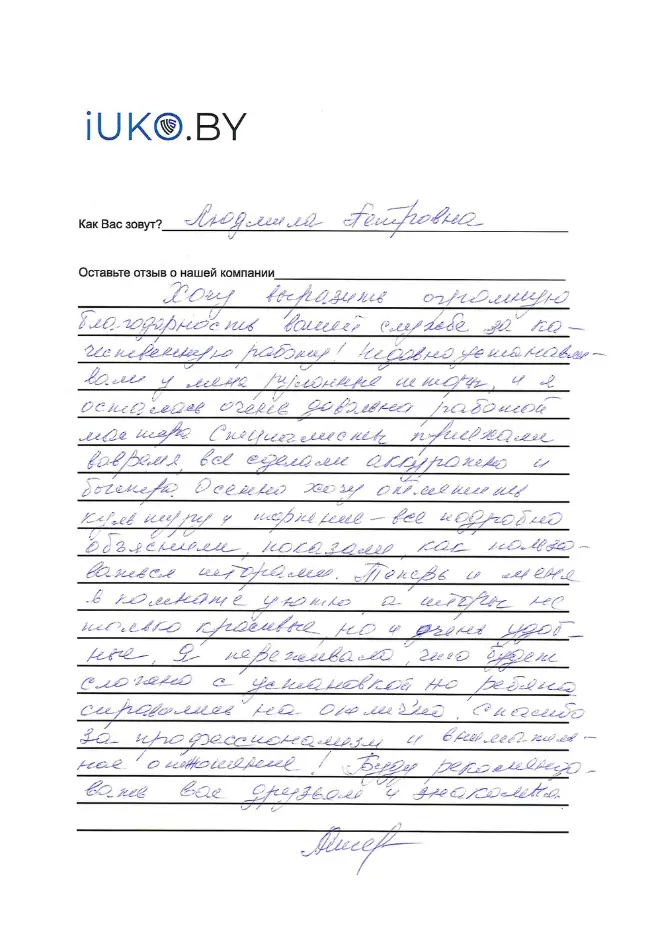 iUKO.BY
Как Вас зовут? Людмила Петровна
Оставьте отзыв о нашей компании
Хочу выразить огромную
благодарность вашей службе за ка-
чественную работу! Недавно устанавли-
вали у меня рулонные шторы, и я
осталась очень довольна работой
мастера. Специалисты приехали
вовремя, все сделали аккуратно и
быстро. Осенно хочу отметить
культуру и терпение – все подробно
объяснили, показали, как пользо-
ваться шторами. Теперь и меня
в комнате уютно, а шторы не
только красивые, но и очень удоб-
ные. Я переживала, что будет
сложно с установкой но ребята
справились на отлично. Спасибо
за профессионализм и вниматель-
ное отношение! Буду рекоменд-
вать вас друзьям и знакомым